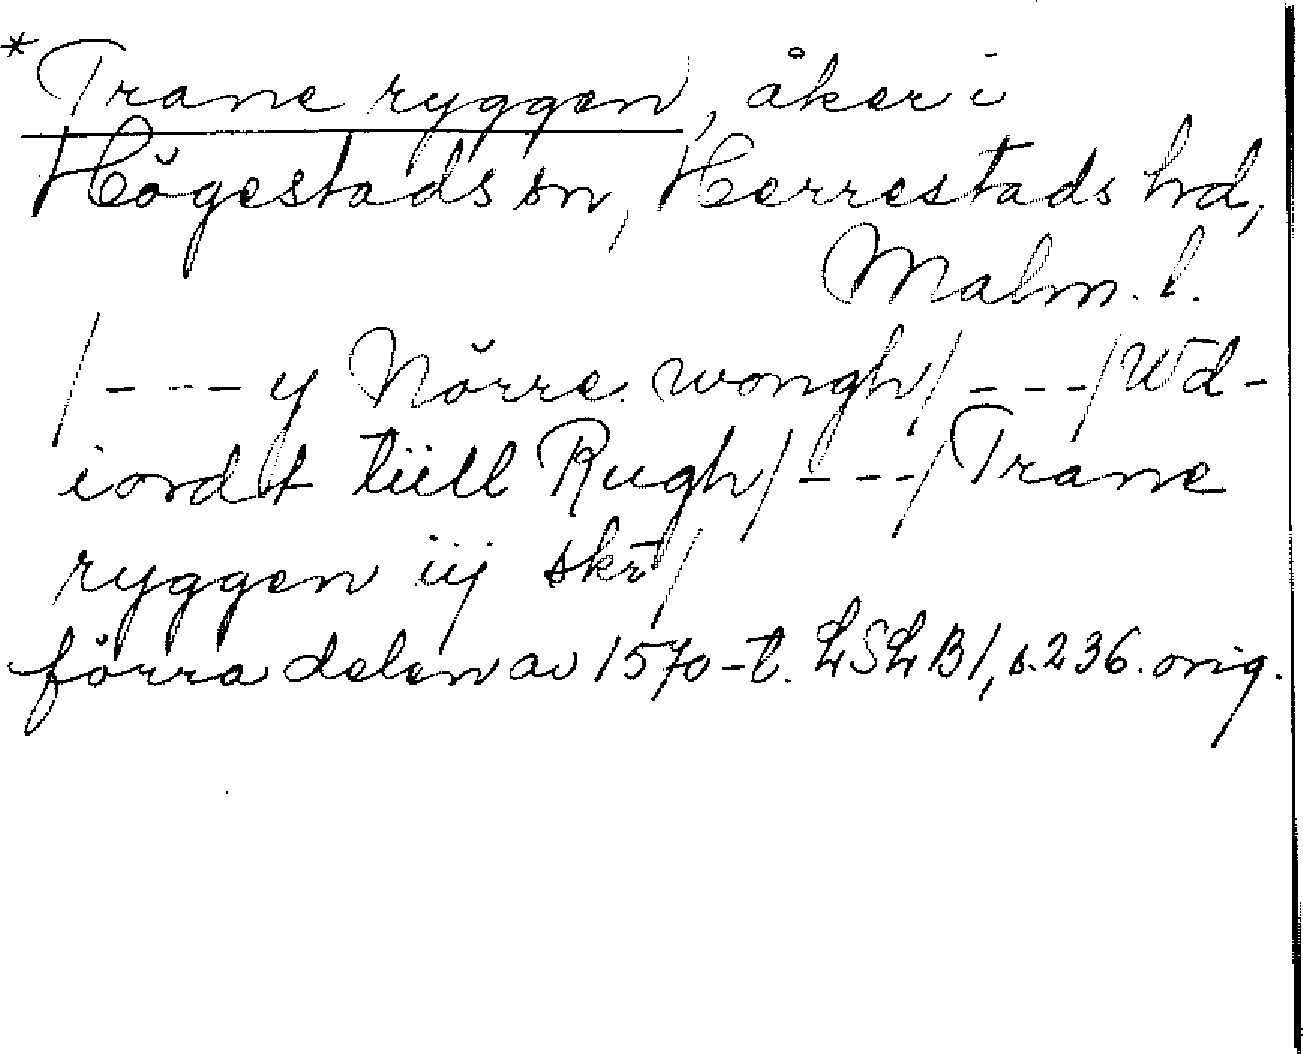 * Trane ryggen, åker i
Högestads sn, Herrestads hd,
Malm. l.
/---y Nörre wongh/---/Wd-
iordt tiill Rugh/---/Trane
ryggen iij skr̄/
förra delen av 1570-t. LSLB1, s.236. orig.